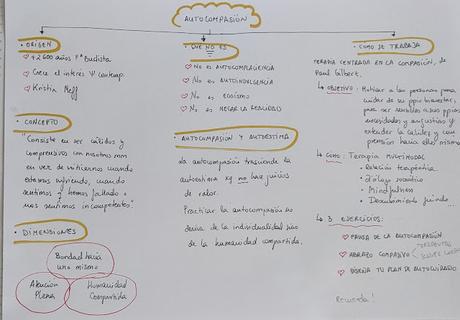 AUTOCOMPASIÓN
• ORIGEN
+2600 años Fª Budista
Crece el interés Ψ contemp.
Kristin Neff
• CONCEPTO
"Consiste en ser cálidos y
comprensivos con nosotros mism
en vez de critiarnos cuando
estamos sufriendo, cuando
sentimos q hemos fallado o
nos sentimos incompetentes"
• DIMENSIONES
Bondad hacia
uno mismo
Atención
Plena
Humanidad
Compartida
• QUÉ NO ES
No es AUTOCOMPLACENCIA
No es AUTOINDULGENCIA
No es EGOÍSMO
No es NEGAR LA REALIDAD
• AUTOCOMPASIÓN Y AUTOESTIMA
La autocompasión trasciende la
autoestima xq no hace juicios
de valor.
Practicar la autocompasión no
deriva de la individualidad sino de
la humanidad compartida.
• CÓMO SE TRABAJA
TERAPIA CENTRADA EN LA COMPASIÓN, de
Paul Gilbert.
OBJETIVO: Motivar a las personas para
cuidar de su ppio bienestar,
para ser sensibles a sus ppias
necesidades y angustias y
extender la calidez y com
prensión hacia ellos mismos
CÓMO: Terapia MULTIMODAL
• Relación terapéutica
• Diálogo socrático
• Mindfulness
• Descubrimiento guiado...
3 EJERCICIOS:
PAUSA DE LA AUTOCOMPASIÓN
ABRAZO COMPASIVO
DISEÑA TU PLAN DE AUTOCUIDADO
Recuerda!